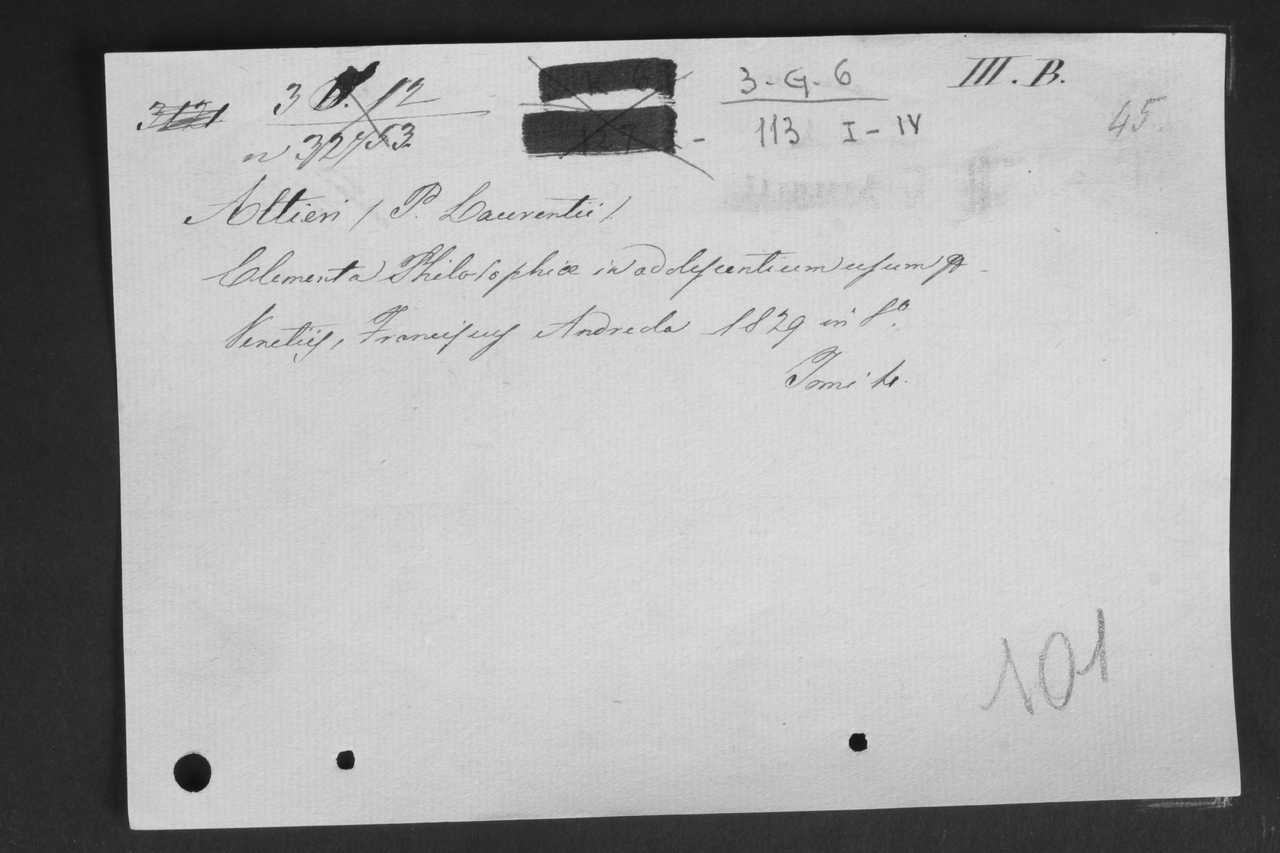 3 12 3-G-6 III. B.
n 32753 113 I-IV 45.
Altieri (P. Laurentii)
Elementa Philosophiæ in adolescentium usum
Venetiis, Franciscus Andreola 1829 in 8º.
Tomi 4.
101